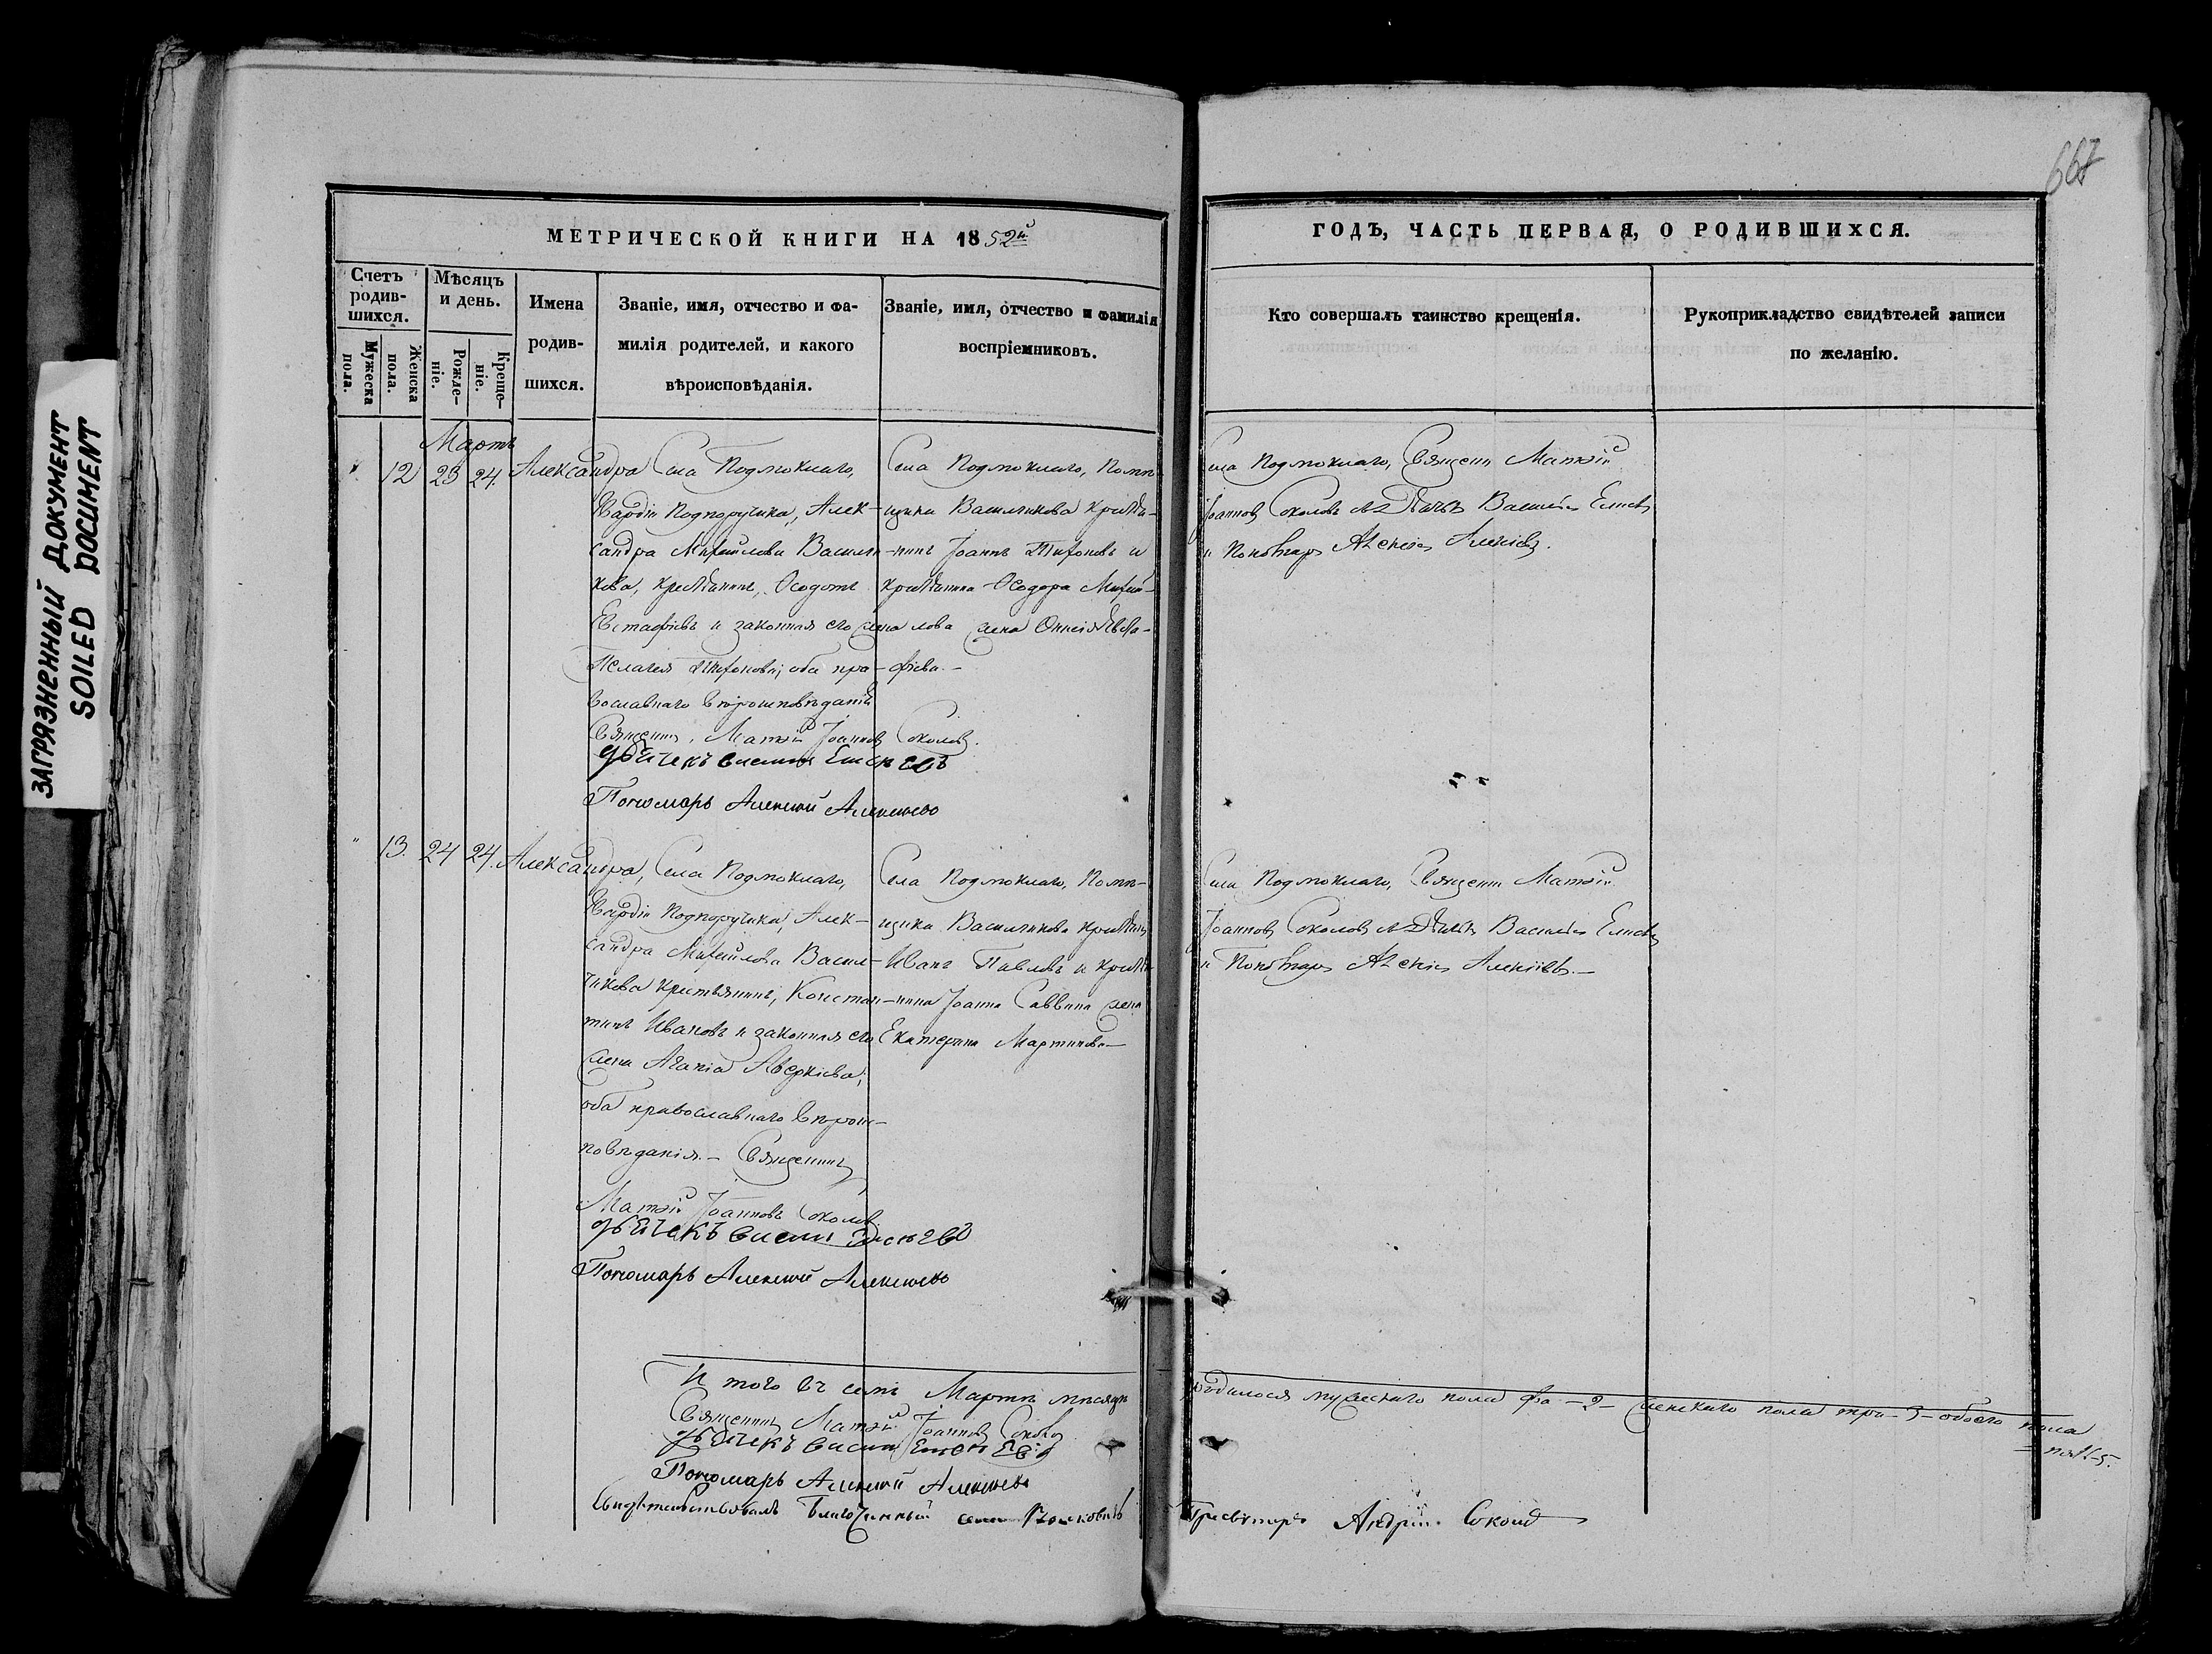 ЗАГРЯЗНЕННЫЙ ДОКУМЕНТ
SOILED DOCUMENT
667
МЕТРИЧЕСКОЙ КНИГИ НА 1852й
ГОДЪ, ЧАСТЬ ПЕРВАЯ, О РОДИВШИХСЯ.
Счетъ
родив-
шихся.
Мужеска
пола.
Женска
пола.
Мѣсяцъ
и день.
Рожде-
ніе.
Креще-
ніе.
Имена
родив-
шихся.
Званіе, имя, отчество и фа-
милія родителей, и какого
вѣроисповѣданія.
Званіе, имя, отчество и фамилія
воспріемниковъ.
Кто совершалъ таинство крещенія.
Рукоприкладство свидѣтелей записи
по желанію.
Мартъ
12 23 24. Александра
Села Подмоклаго,
Гвардіи Подпоручика, Алек-
сандра Михайлова Василь-
кова, крестьянинъ, Ѳеодотъ
Евстафіевъ и законная его жена
Пелагея Тихонова; оба пра-
вославнаго вѣроисповѣданія
Священникъ Матѳій Іоанновъ Соколовъ.
Дьячекъ Василий Елисѣевъ
Пономарь Алексѣй Алексѣевъ
Села Подмоклаго, Помѣ-
щика Васильчикова крестья-
нинъ Іоаннъ Тихоновъ и
крестьянина Ѳеодора Михай-
лова жена Евста-
фіева.-
Села Подмоклаго, Священ. Матѳій
Іоанновъ Соколовъ съ Дьячк. Василіемъ Елисѣев.
и Пономар. Алексіем Алексіевъ.
13. 24 24. Александра,
Села Подмоклаго,
Гвардіи Подпоручика, Алек-
сандра Михайлова Василь-
чикова крестьянинъ, Констан-
тинъ Ивановъ и законная его
жена Агапіа Аверкіева;
оба православнаго вѣроис-
повѣданія.- Священникъ
Матѳій Іоанновъ Соколовъ.
Дьячекъ Василий Елисѣевъ
Пономарь Алексѣй Алексѣевъ
Села Подмоклаго, Помѣ-
щика Васильчикова крестьянинъ
Иванъ Павловъ и крестья-
нина Іоанна Саввина жена
Екатерина Мартинова-
Села Подмоклаго, Священ. Матѳій
Іоанновъ Соколовъ съ Дьячк. Василіемъ Елисѣев.
и Пономар. Алексіем Алексіевъ.-
И того въ семъ Мартѣ мѣсяцѣ родилося мужескаго пола два -2- женскаго пола три -3- обоего пола
= пять-5.
Священникъ Матѳій Іоанновъ Соколовъ
Дьячекъ Василий Елисѣевъ
Пономарь Алексѣй Алексѣевъ
Свидѣтельствовалъ Благочинный
Пресвитеръ Андрей Соколовъ